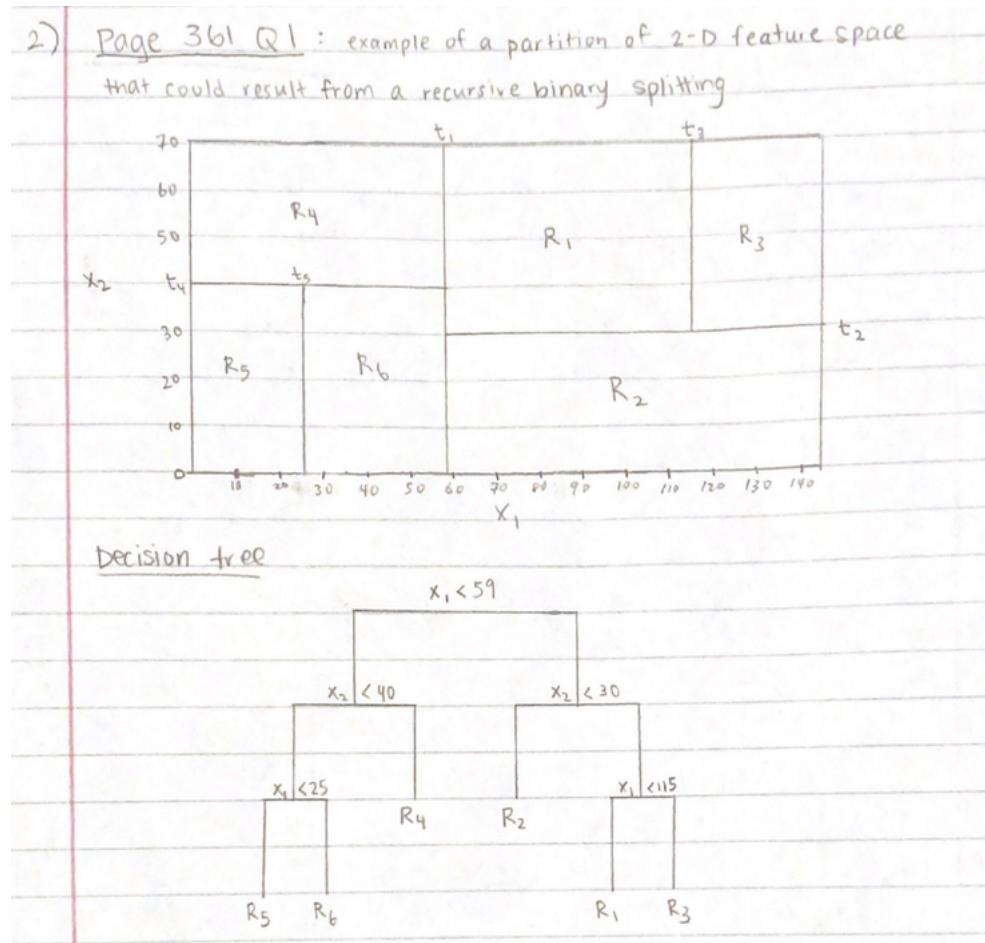 2) Page 361 Q1 : example of a partition of 2-D feature space
that could result from a recursive binary splitting
t₁ t₃
70
60
R₄
50 R₁ R₃
X₂ t₄ t₅
30 t₂
R₅ R₆
20 R₂
10
0
10 20 30 40 50 60 70 80 90 100 110 120 130 140
X₁
Decision tree
x₁ < 59
x₂ < 40 x₂ < 30
x₁ < 25 x₁ < 115
R₄ R₂
R₅ R₆ R₁ R₃